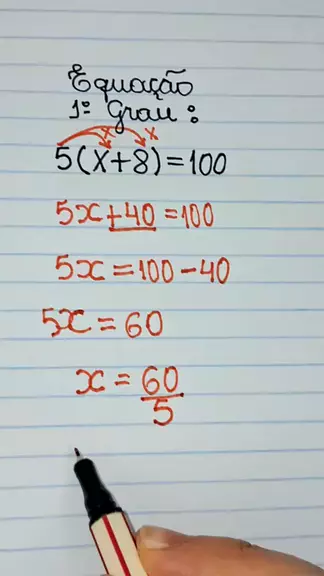 Equação
1º Grau:
x x
5(x+8)=100
5x+40=100
5x=100-40
5x=60
x=60/5